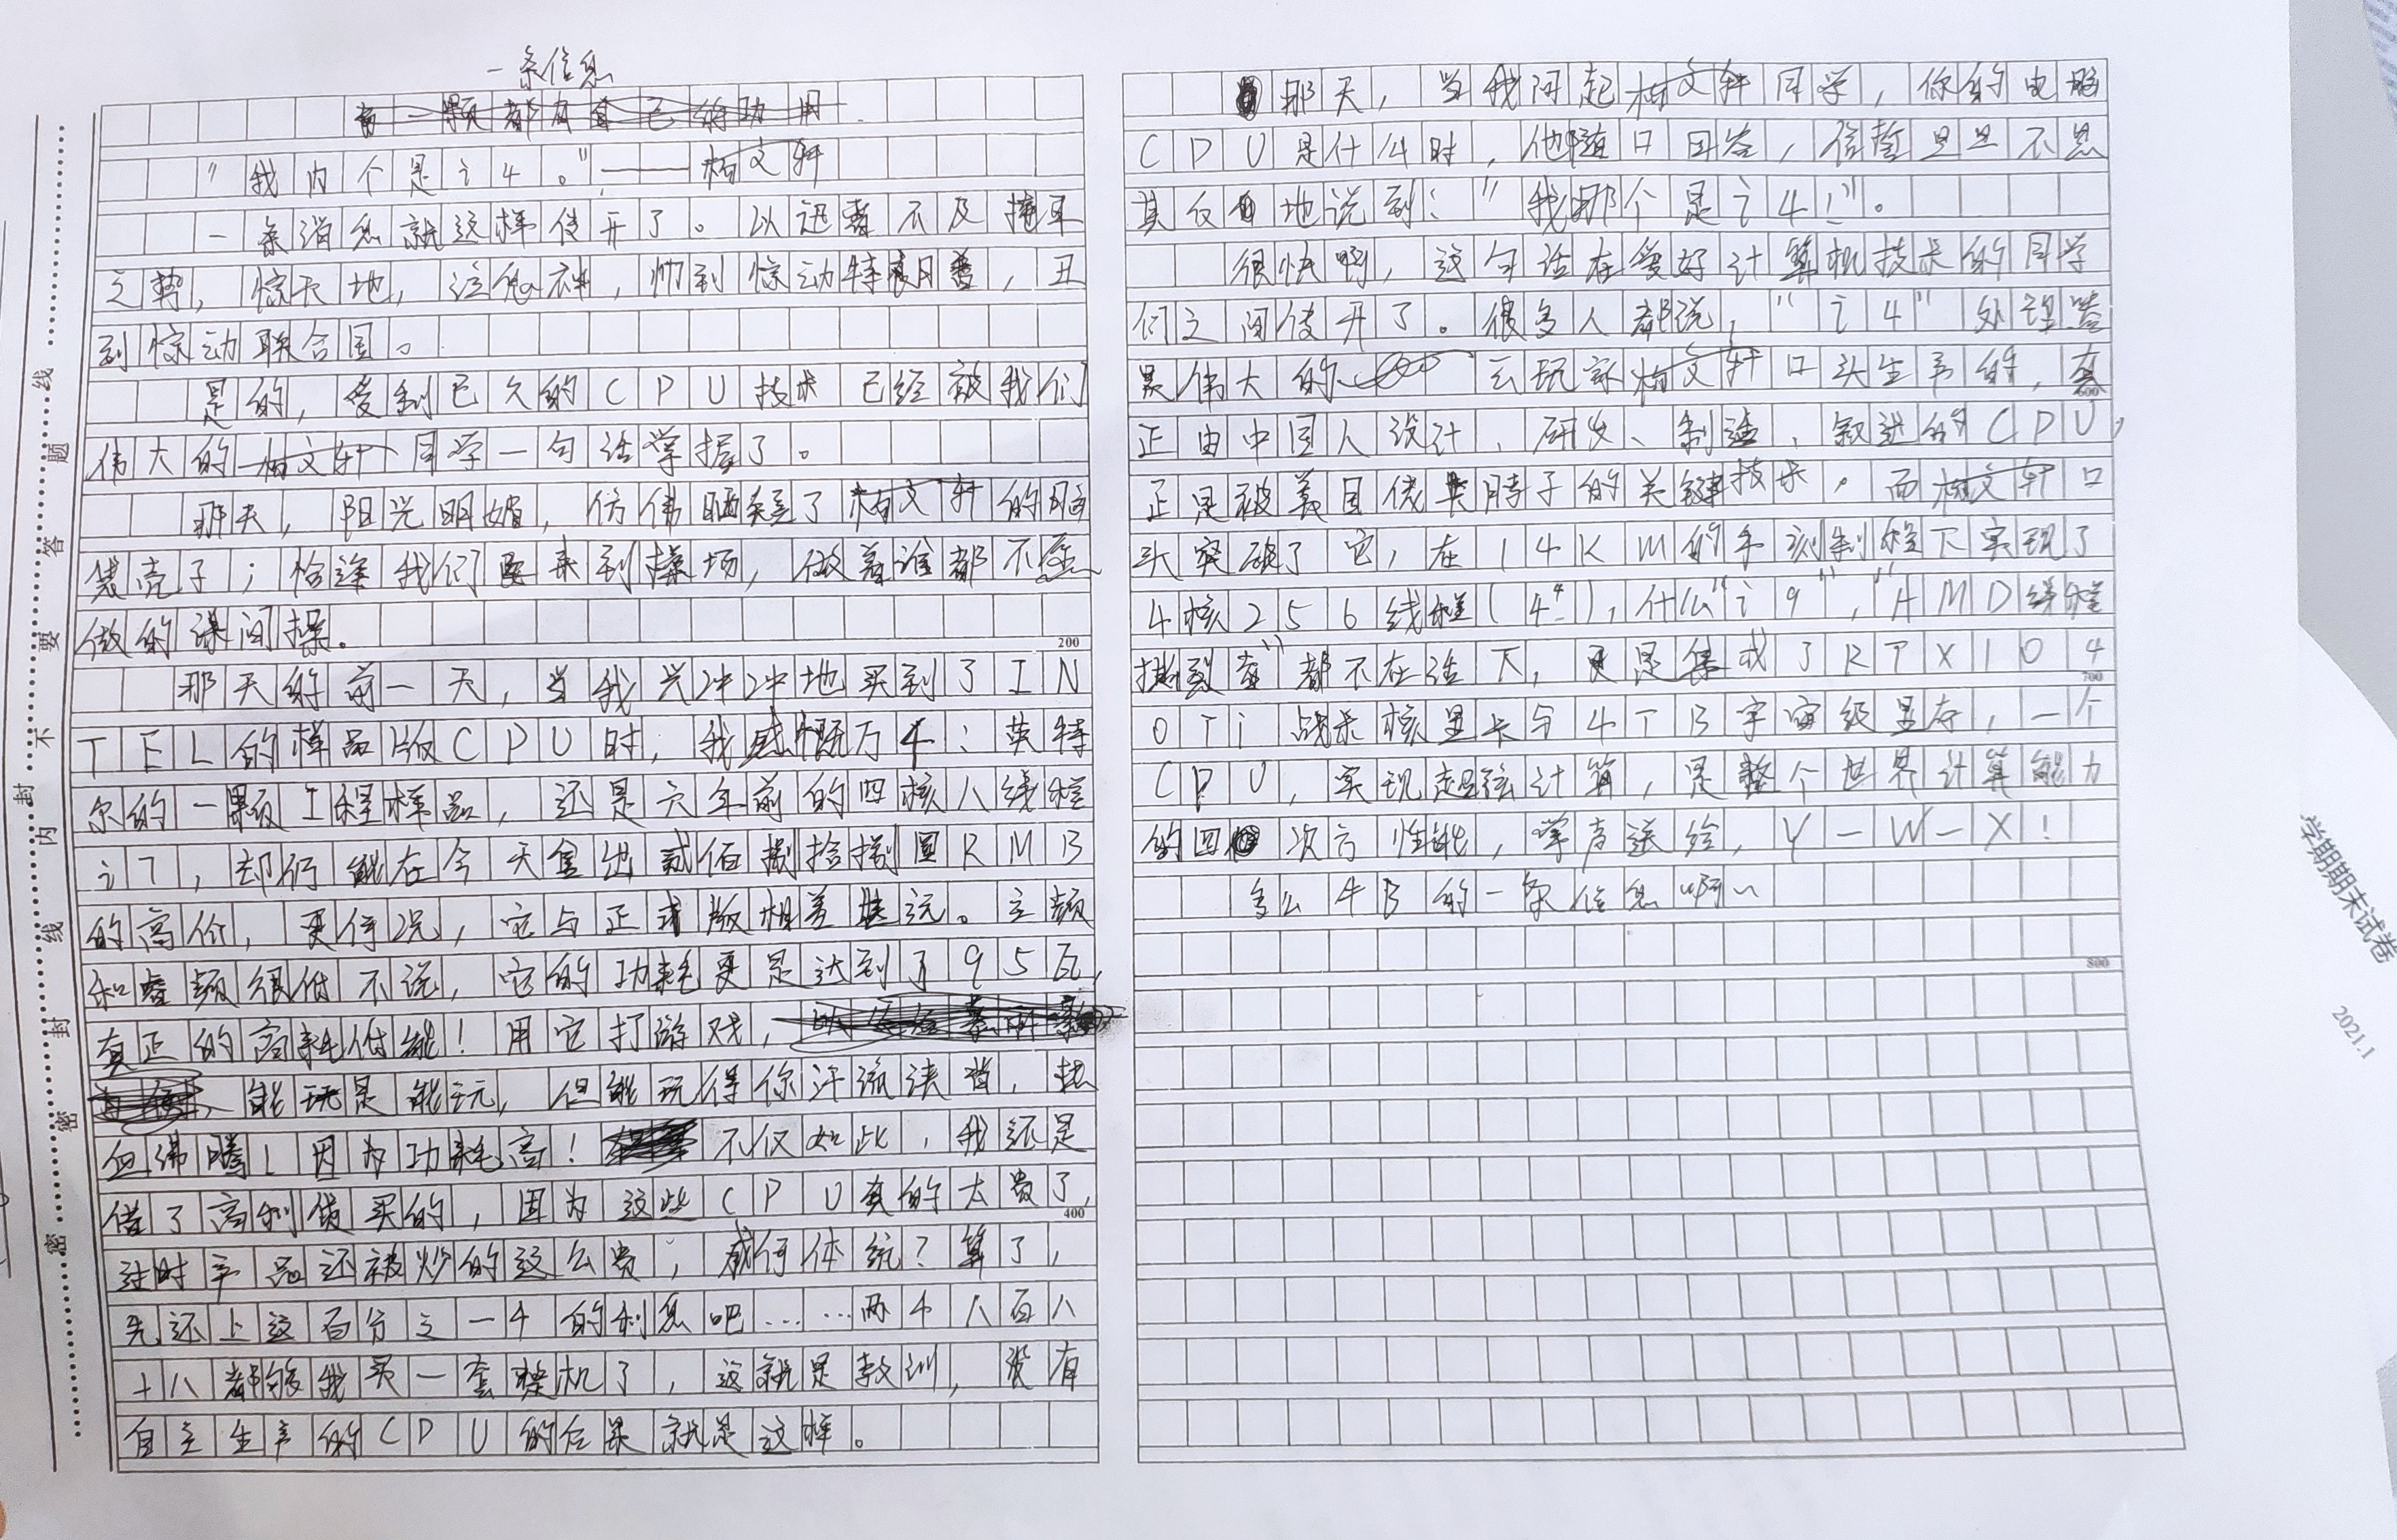 一条信息
"我内个是i4。"——杨文轩
一条消息就这样传开了。以迅雷不及掩耳
之势,惊天地,泣鬼神,帅到惊动特朗普,丑
到惊动联合国。
是的,受制已久的CPU技术已经被我们
伟大的杨文轩同学一句话掌握了。
那天,阳光明媚,仿佛晒透了杨文轩的脑
袋壳子;恰逢我们来到操场,做着谁都不愿
做的课间操。
那天的前一天,当我兴冲冲地买到了IN
TEL的样品版CPU时,我感慨万千:英特
尔的一颗工程样品,还是六年前的四核八线程
i7,却仍能在今天拿出贰佰捌拾捌圆RMB
的高价,更何况,它与正式版相差甚远。主频
和睿频很低不说,它的功耗更是达到了95瓦,
真正的高耗低能!用它打游戏,
能玩是能玩,但能玩得你汗流浃背,热
血沸腾!因为功耗高!不仅如此,我还是
借了高利贷买的,因为这些CPU真的太贵了,
过时产品还被炒的这么贵,成何体统?算了,
先还上这百分之一千的利息吧……两千八百八
十八都够我买一套整机了,这就是教训,没有
自主生产的CPU的后果就是这样。
那天,当我问起杨文轩同学,你的电脑
CPU是什么时,他随口回答,信誓旦旦不思
其反地说到:"我那个是i4!"。
很快啊,这句话在爱好计算机技术的同学
们之间传开了。很多人都说,"i4"处理器
是伟大的云玩家杨文轩口头生产的,真
正由中国人设计、研发、制造、叙述的CPU,
正是被美国佬卡脖子的关键技术,而杨文轩口
头突破了它,在14KM的手刻制程下实现了
4核256线程(4⁴),什么"i9","AMD线程
撕裂者"都不在话下,更是集成了RTX104
0Ti战术核显卡与4TB宇宙级显存,一个
CPU,实现超弦计算,是整个世界计算能力
的四次方性能,掌声送给,Y-W-X!
多么牛B的一条信息啊~
200
400
600
700
800
密封线内不要答题
学期期末试卷
2021.1